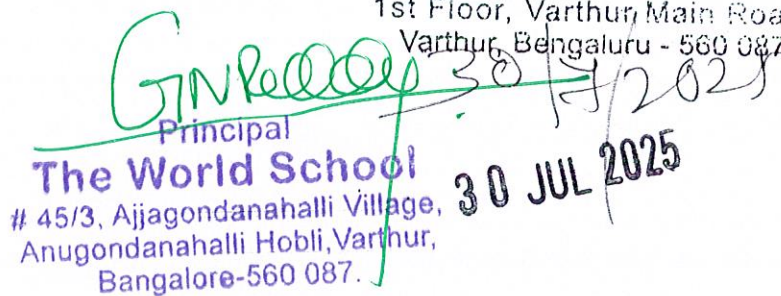 1st Floor, Varthur Main Roa
Varthur, Bengaluru - 560 087
GNReddy 30/7/2025
Principal
The World School
30 JUL 2025
# 45/3, Ajjagondanahalli Village,
Anugondanahalli Hobli,Varthur,
Bangalore-560 087.